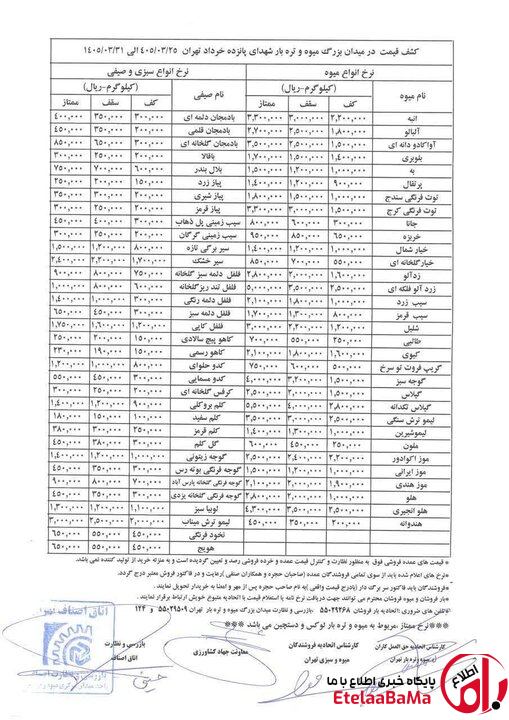 کشف قیمت در میدان بزرگ میوه و تره بار شهدای پانزده خرداد تهران ۴۰۵/۰۳/۲۵ الی ۱۴۰۵/۰۳/۳۱
نرخ انواع میوه نرخ انواع سبزی و صیفی
نام میوه (کیلوگرم-ریال) نام صیفی (کیلوگرم-ریال)
کف سقف ممتاز کف سقف ممتاز
انبه ۲,۲۰۰,۰۰۰ ۳,۰۰۰,۰۰۰ ۳,۳۰۰,۰۰۰ بادمجان دلمه ای ۳۰۰,۰۰۰ ۳۵۰,۰۰۰ ۴۰۰,۰۰۰
آلبالو ۱,۸۰۰,۰۰۰ ۲,۵۰۰,۰۰۰ ۲,۷۰۰,۰۰۰ بادمجان قلمی ۲۰۰,۰۰۰ ۳۵۰,۰۰۰ ۴۵۰,۰۰۰
آواکادو دانه ای ۱,۵۰۰,۰۰۰ ۲,۵۰۰,۰۰۰ ۳,۵۰۰,۰۰۰ بادمجان گلخانه ای ۳۰۰,۰۰۰ ۶۵۰,۰۰۰ ۸۵۰,۰۰۰
بلوبری ۱,۴۰۰,۰۰۰ ۱,۵۰۰,۰۰۰ ۱,۷۰۰,۰۰۰ باقالا ۲۰۰,۰۰۰ ۲۵۰,۰۰۰ ۳۰۰,۰۰۰
به ۱,۰۰۰,۰۰۰ ۱,۲۰۰,۰۰۰ ۱,۵۰۰,۰۰۰ بلال بندر ۶۰۰,۰۰۰ ۷۰۰,۰۰۰ ۷۵۰,۰۰۰
پرتقال ۹۰۰,۰۰۰ ۱,۲۰۰,۰۰۰ ۱,۴۰۰,۰۰۰ پیاز زرد ۱۵۰,۰۰۰ ۲۰۰,۰۰۰ ۲۵۰,۰۰۰
توت فرنگی سنندج ۱,۰۰۰,۰۰۰ پیاز شیری ۲۰۰,۰۰۰ ۲۵۰,۰۰۰ ۳۵۰,۰۰۰
توت فرنگی کرج ۱,۵۰۰,۰۰۰ ۳,۰۰۰,۰۰۰ ۳,۳۰۰,۰۰۰ پیاز قرمز ۲۰۰,۰۰۰ ۲۵۰,۰۰۰ ۳۰۰,۰۰۰
جانا ۳۰۰,۰۰۰ ۶۰۰,۰۰۰ ۸۰۰,۰۰۰ سیب زمینی پل ذهاب ۳۰۰,۰۰۰ ۴۰۰,۰۰۰ ۴۵۰,۰۰۰
خربزه ۶۵۰,۰۰۰ ۸۵۰,۰۰۰ ۹۵۰,۰۰۰ سیب زمینی گرگان
خیار شمال ۱,۰۰۰,۰۰۰ ۱,۲۰۰,۰۰۰ ۱,۴۰۰,۰۰۰ سیر برگی تازه ۸۰۰,۰۰۰ ۱,۲۰۰,۰۰۰ ۱,۵۰۰,۰۰۰
خیارگلخانه ای ۵۵۰,۰۰۰ ۷۰۰,۰۰۰ ۸۵۰,۰۰۰ سیر خشک ۱,۷۰۰,۰۰۰ ۲,۲۰۰,۰۰۰ ۲,۴۰۰,۰۰۰
زردآلو ۱,۶۰۰,۰۰۰ ۲,۰۰۰,۰۰۰ ۲,۸۰۰,۰۰۰ فلفل دلمه سبز گلخانه ۷۵۰,۰۰۰ ۸۰۰,۰۰۰ ۹۰۰,۰۰۰
زرد آلو فلکه ای ۲,۵۰۰,۰۰۰ ۳,۸۰۰,۰۰۰ ۵,۰۰۰,۰۰۰ فلفل تند ریزگلخانه ۶۰۰,۰۰۰ ۸۰۰,۰۰۰ ۱,۰۰۰,۰۰۰
سیب زرد ۱,۰۰۰,۰۰۰ ۱,۸۰۰,۰۰۰ ۲,۱۰۰,۰۰۰ فلفل دلمه رنگی ۳۰۰,۰۰۰ ۱,۰۰۰,۰۰۰ ۱,۴۰۰,۰۰۰
سیب قرمز ۸۰۰,۰۰۰ ۱,۳۰۰,۰۰۰ ۱,۷۰۰,۰۰۰ فلفل دلمه سبز ۳۰۰,۰۰۰ ۴۵۰,۰۰۰ ۶۵۰,۰۰۰
شلیل ۱,۲۰۰,۰۰۰ ۲,۲۰۰,۰۰۰ ۳,۰۰۰,۰۰۰ فلفل کاپی ۱,۲۰۰,۰۰۰ ۱,۶۰۰,۰۰۰ ۱,۷۵۰,۰۰۰
طالبی ۲۵۰,۰۰۰ ۵۵۰,۰۰۰ ۷۰۰,۰۰۰ کاهو پیچ سالادی ۱۵۰,۰۰۰ ۲۰۰,۰۰۰ ۲۵۰,۰۰۰
کیوی ۱,۶۰۰,۰۰۰ ۱,۸۰۰,۰۰۰ ۲,۱۰۰,۰۰۰ کاهو رسمی ۱۵۰,۰۰۰ ۱۹۰,۰۰۰ ۲۳۰,۰۰۰
گریپ فروت تو سرخ ۵۰۰,۰۰۰ ۶۰۰,۰۰۰ ۷۵۰,۰۰۰ کدو حلوای ۸۰۰,۰۰۰ ۱,۰۰۰,۰۰۰ ۱,۲۰۰,۰۰۰
گوجه سبز ۱,۵۰۰,۰۰۰ ۳,۲۰۰,۰۰۰ ۴,۰۰۰,۰۰۰ کدو مسمایی ۳۰۰,۰۰۰ ۴۵۰,۰۰۰ ۵۵۰,۰۰۰
گیلاس ۱,۵۰۰,۰۰۰ ۲,۵۰۰,۰۰۰ کرفس گلخانه ای ۲۵۰,۰۰۰ ۳۵۰,۰۰۰ ۴۵۰,۰۰۰
گیلاس تکدانه ۲,۸۰۰,۰۰۰ ۴,۵۰۰,۰۰۰ ۵,۵۰۰,۰۰۰ کلم بروکلی ۹۰۰,۰۰۰ ۱,۲۰۰,۰۰۰ ۱,۴۰۰,۰۰۰
لیمو ترش سنگی ۲,۵۰۰,۰۰۰ ۳,۰۰۰,۰۰۰ ۳,۵۰۰,۰۰۰ کلم سفید ۱۰۰,۰۰۰ ۱۵۰,۰۰۰ ۱۸۰,۰۰۰
لیموشیرین کلم قرمز ۲۰۰,۰۰۰ ۳۰۰,۰۰۰ ۳۸۰,۰۰۰
ملون ۲۵۰,۰۰۰ ۴۵۰,۰۰۰ ۶۰۰,۰۰۰ گل کلم ۳۰۰,۰۰۰ ۳۸۰,۰۰۰ ۴۵۰,۰۰۰
موز اکوادور ۲,۲۰۰,۰۰۰ ۲,۴۰۰,۰۰۰ ۲,۵۰۰,۰۰۰ گوجه زیتونی ۱,۰۰۰,۰۰۰ ۱,۲۰۰,۰۰۰ ۱,۴۰۰,۰۰۰
موز ایرانی ۱,۰۰۰,۰۰۰ ۱,۲۰۰,۰۰۰ ۱,۵۰۰,۰۰۰ گوجه فرنگی بوته رس ۲۰۰,۰۰۰ ۳۵۰,۰۰۰ ۴۵۰,۰۰۰
موز هندی ۱,۲۰۰,۰۰۰ ۱,۹۰۰,۰۰۰ ۲,۱۰۰,۰۰۰ گوجه فرنگی گلخانه پارس آباد ۷۰۰,۰۰۰ ۸۰۰,۰۰۰ ۹۰۰,۰۰۰
هلو ۱,۰۰۰,۰۰۰ ۲,۲۰۰,۰۰۰ ۲,۸۰۰,۰۰۰ گوجه فرنگی گلخانه یزدی ۲۰۰,۰۰۰ ۳۵۰,۰۰۰ ۴۵۰,۰۰۰
هلو انجیری ۲,۰۰۰,۰۰۰ ۳,۳۰۰,۰۰۰ ۴,۳۰۰,۰۰۰ لوبیا سبز ۱,۱۰۰,۰۰۰ ۱,۲۰۰,۰۰۰ ۱,۳۰۰,۰۰۰
هندوانه ۲۰۰,۰۰۰ ۳۵۰,۰۰۰ ۴۵۰,۰۰۰ لیمو ترش میناب ۲,۰۰۰,۰۰۰ ۲,۵۰۰,۰۰۰ ۳,۰۰۰,۰۰۰
نخود فرنگی ۵۵۰,۰۰۰ ۶۵۰,۰۰۰
هویج ۵۵۰,۰۰۰ ۶۵۰,۰۰۰
* قیمت های عمده فروشی فوق به منظور نظارت و کنترل قیمت عمده و خرده فروشی رصد و تعیین گردیده است و به منزله خرید از تولید کننده نمی باشد.
*نرخ های اعلام شده باید از سوی تمامی فروشندگان عمده (صاحبان حجره و همکاران صنفی) رعایت و در فاکتور فروش معتبر درج گردد.
*فروشندگان باید فاکتور سر برگ دار (بادرج قیمت واقعی) به نام صاحب حجره پس از مهر و امضا به خریدار تحویل نمایند.
*اتحادیه بار فروشان و فروشندگان محترم می توانند جهت دریافت نرخ نامه یا استعلام قیمت با اتحادیه متبوع خویش ارتباط برقرار نمایند.
*تلفن های ضروری: اتحادیه بار فروشان ۵۵۰۲۹۲۶۸ -بازرسی و نظارت میدان بزرگ میوه و تره بار تهران ۵۵۰۲۹۵۰۹ و ۱۲۴
*** نرخ ممتاز مربوط به میوه و تره بار لوکس و دستچین می باشد ***
کارشناس اتحادیه حق العمل کاران میوه و تره بار تهران
کارشناس اتحادیه فروشندگان میوه و سبزی تهران
معاونت جهاد کشاورزی
بازرسی و نظارت اتاق اصناف
اتاق اصناف
بازرسی و نظارت
اطلاع با ما
پایگاه خبری اطلاع با ما
EtelaaBaMa